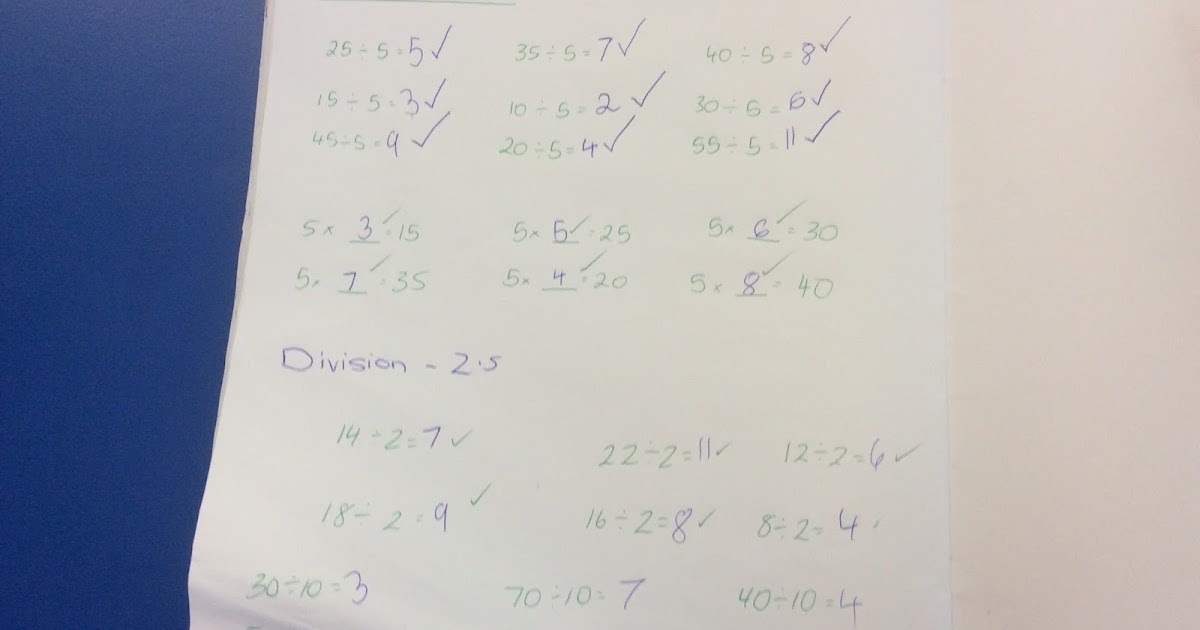 25 ÷ 5 = 5 ✓ 35 ÷ 5 = 7 ✓ 40 ÷ 5 = 8 ✓
15 ÷ 5 = 3 ✓ 10 ÷ 5 = 2 ✓ 30 ÷ 5 = 6 ✓
45 ÷ 5 = 9 ✓ 20 ÷ 5 = 4 ✓ 55 ÷ 5 = 11 ✓
5 × 3 = 15 ✓ 5 × 5 = 25 ✓ 5 × 6 = 30 ✓
5 × 7 = 35 ✓ 5 × 4 = 20 ✓ 5 × 8 = 40 ✓
Division - 2.5
14 ÷ 2 = 7 ✓ 22 ÷ 2 = 11 ✓ 12 ÷ 2 = 6 ✓
18 ÷ 2 = 9 ✓ 16 ÷ 2 = 8 ✓ 8 ÷ 2 = 4 ✓
30 ÷ 10 = 3 70 ÷ 10 = 7 40 ÷ 10 = 4